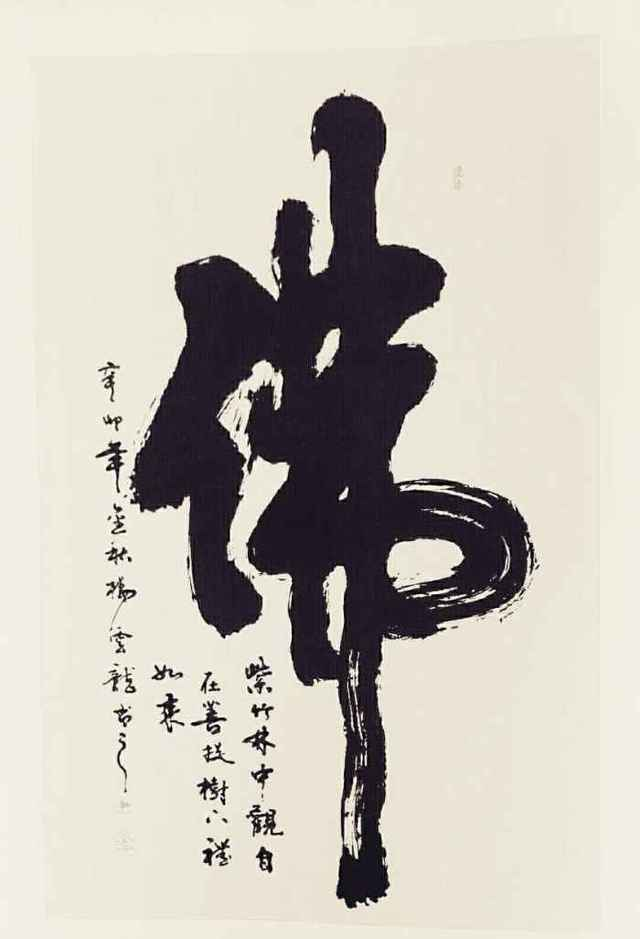 佛
紫竹林中觀自
在菩提樹下禮
如来
辛卯年金秋楊雲龍书之